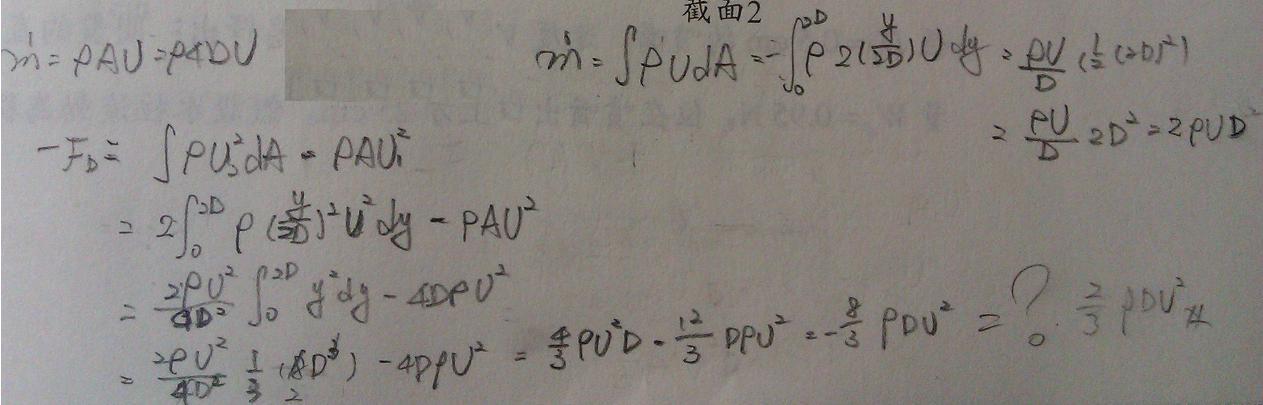 截面2
ṁ = ρAU = ρ4DU
ṁ = ∫ρUdA = -∫₀²ᴰ ρ 2(y/2D)U dy = ρU/D (1/2 (2D)²)
= ρU/D 2D² = 2ρUD²
-F_D = ∫ρU₃²dA - ρAU₁²
= 2∫₀²ᴰ ρ (y/2D)² U² dy - ρAU²
= 2ρU²/4D² ∫₀²ᴰ y² dy - 4DρU²
= 2ρU²/4D² 1/3 (8D³) - 4DρU² = 4/3 ρU²D - 12/3 DρU² = -8/3 ρDU² = ? 2/3 ρDU² #